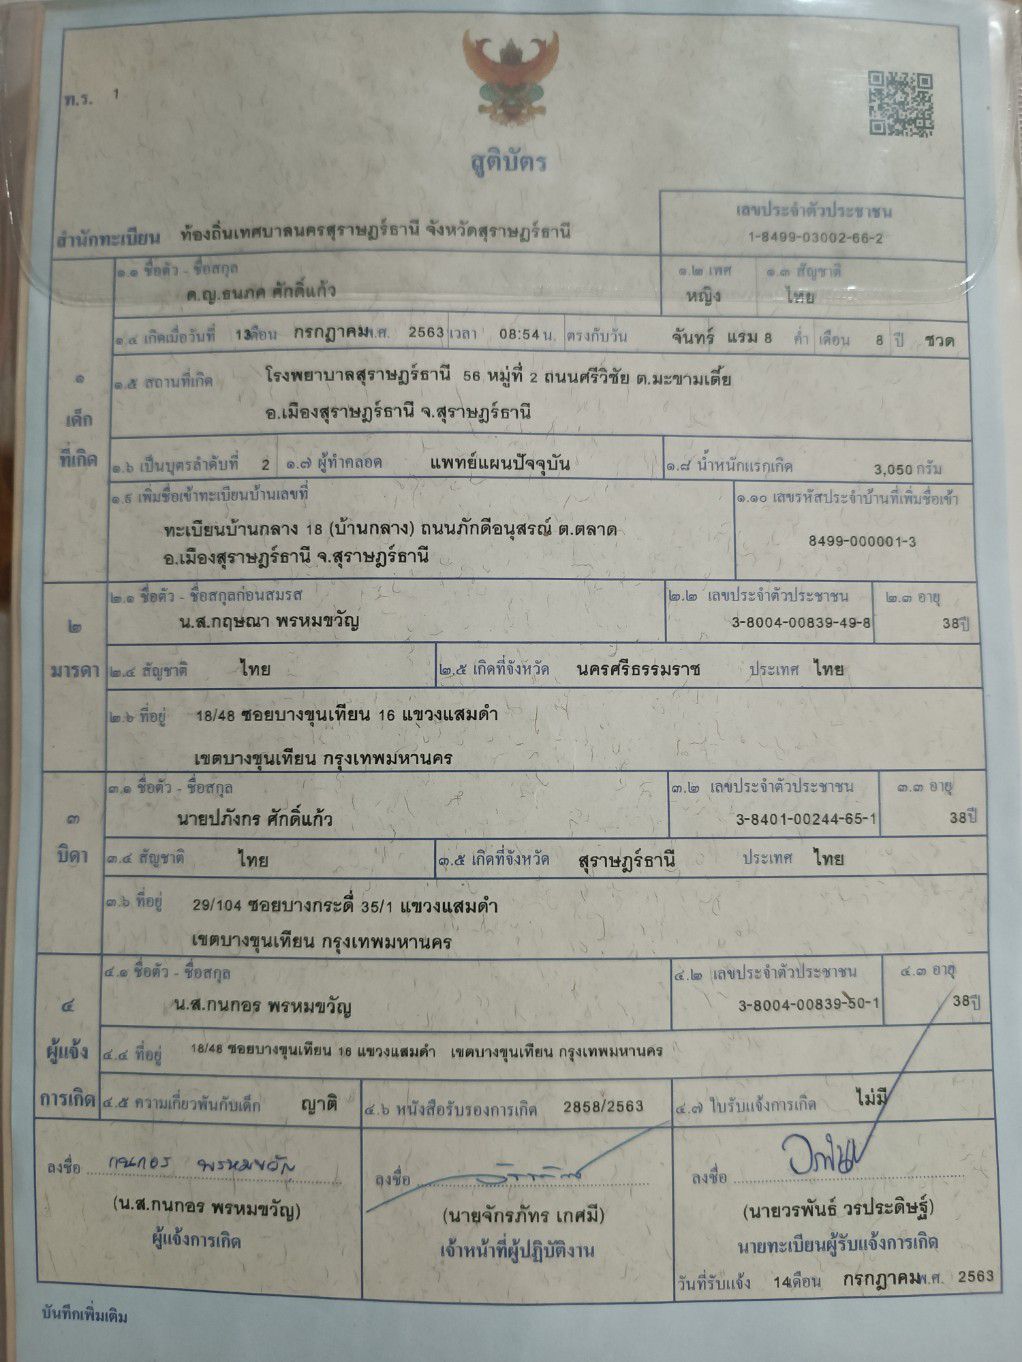 ท.ร. 1
สูติบัตร
สำนักทะเบียน ท้องถิ่นเทศบาลนครสุราษฎร์ธานี จังหวัดสุราษฎร์ธานี
เลขประจำตัวประชาชน
1-8499-03002-66-2
๑.๑ ชื่อตัว - ชื่อสกุล
ด.ญ.ธนภค ศักดิ์แก้ว
๑.๒ เพศ
หญิง
๑.๓ สัญชาติ
ไทย
๑.๔ เกิดเมื่อวันที่ 13 เดือน กรกฎาคม พ.ศ. 2563 เวลา 08:54 น. ตรงกับวัน จันทร์ แรม 8 ค่ำ เดือน 8 ปี ชวด
๑
เด็ก
ที่เกิด
๑.๕ สถานที่เกิด โรงพยาบาลสุราษฎร์ธานี 56 หมู่ที่ 2 ถนนศรีวิชัย ต.มะขามเตี้ย
อ.เมืองสุราษฎร์ธานี จ.สุราษฎร์ธานี
๑.๖ เป็นบุตรลำดับที่ 2 ๑.๗ ผู้ทำคลอด แพทย์แผนปัจจุบัน ๑.๘ น้ำหนักแรกเกิด 3,050 กรัม
๑.๙ เพิ่มชื่อเข้าทะเบียนบ้านเลขที่
ทะเบียนบ้านกลาง 18 (บ้านกลาง) ถนนภักดีอนุสรณ์ ต.ตลาด
อ.เมืองสุราษฎร์ธานี จ.สุราษฎร์ธานี
๑.๑๐ เลขรหัสประจำบ้านที่เพิ่มชื่อเข้า
8499-000001-3
๒
มารดา
๒.๑ ชื่อตัว - ชื่อสกุลก่อนสมรส
น.ส.กฤษณา พรหมขวัญ
๒.๒ เลขประจำตัวประชาชน
3-8004-00839-49-8
๒.๓ อายุ
38 ปี
๒.๔ สัญชาติ ไทย ๒.๕ เกิดที่จังหวัด นครศรีธรรมราช ประเทศ ไทย
๒.๖ ที่อยู่ 18/48 ซอยบางขุนเทียน 16 แขวงแสมดำ
เขตบางขุนเทียน กรุงเทพมหานคร
๓
บิดา
๓.๑ ชื่อตัว - ชื่อสกุล
นายปภังกร ศักดิ์แก้ว
๓.๒ เลขประจำตัวประชาชน
3-8401-00244-65-1
๓.๓ อายุ
38 ปี
๓.๔ สัญชาติ ไทย ๓.๕ เกิดที่จังหวัด สุราษฎร์ธานี ประเทศ ไทย
๓.๖ ที่อยู่ 29/104 ซอยบางกระดี่ 35/1 แขวงแสมดำ
เขตบางขุนเทียน กรุงเทพมหานคร
๔
ผู้แจ้ง
การเกิด
๔.๑ ชื่อตัว - ชื่อสกุล
น.ส.กนกอร พรหมขวัญ
๔.๒ เลขประจำตัวประชาชน
3-8004-00839-50-1
๔.๓ อายุ
38 ปี
๔.๔ ที่อยู่ 18/48 ซอยบางขุนเทียน 16 แขวงแสมดำ เขตบางขุนเทียน กรุงเทพมหานคร
๔.๕ ความเกี่ยวพันกับเด็ก ญาติ ๔.๖ หนังสือรับรองการเกิด 2858/2563 ๔.๗ ใบรับแจ้งการเกิด ไม่มี
ลงชื่อ กนกอร พรหมขวัญ
(น.ส.กนกอร พรหมขวัญ)
ผู้แจ้งการเกิด
ลงชื่อ
(นายจักรภัทร เกศมี)
เจ้าหน้าที่ผู้ปฏิบัติงาน
ลงชื่อ
(นายวรพันธ์ วรประดิษฐ์)
นายทะเบียนผู้รับแจ้งการเกิด
วันที่รับแจ้ง 14 เดือน กรกฎาคม พ.ศ. 2563
บันทึกเพิ่มเติม